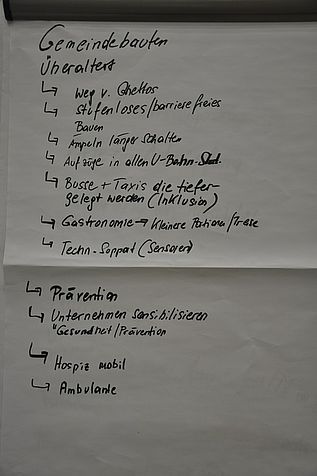 Gemeindebauten
überaltert
↳ weg v. Ghettos
↳ stufenloses/barrierefreies
Bauen
↳ Ampeln länger schalten
↳ Aufzüge in allen U-Bahn-
↳ Busse + Taxis die tiefer-
gelegt werden (Inklusion)
↳ Gastronomie → kleinere Portionen/Preise
↳ Techn. Support (Sensoren)
↳ Prävention
↳ Unternehmen sensibilisieren
"Gesundheit/Prävention
↳ Hospiz mobil
↳ Ambulante